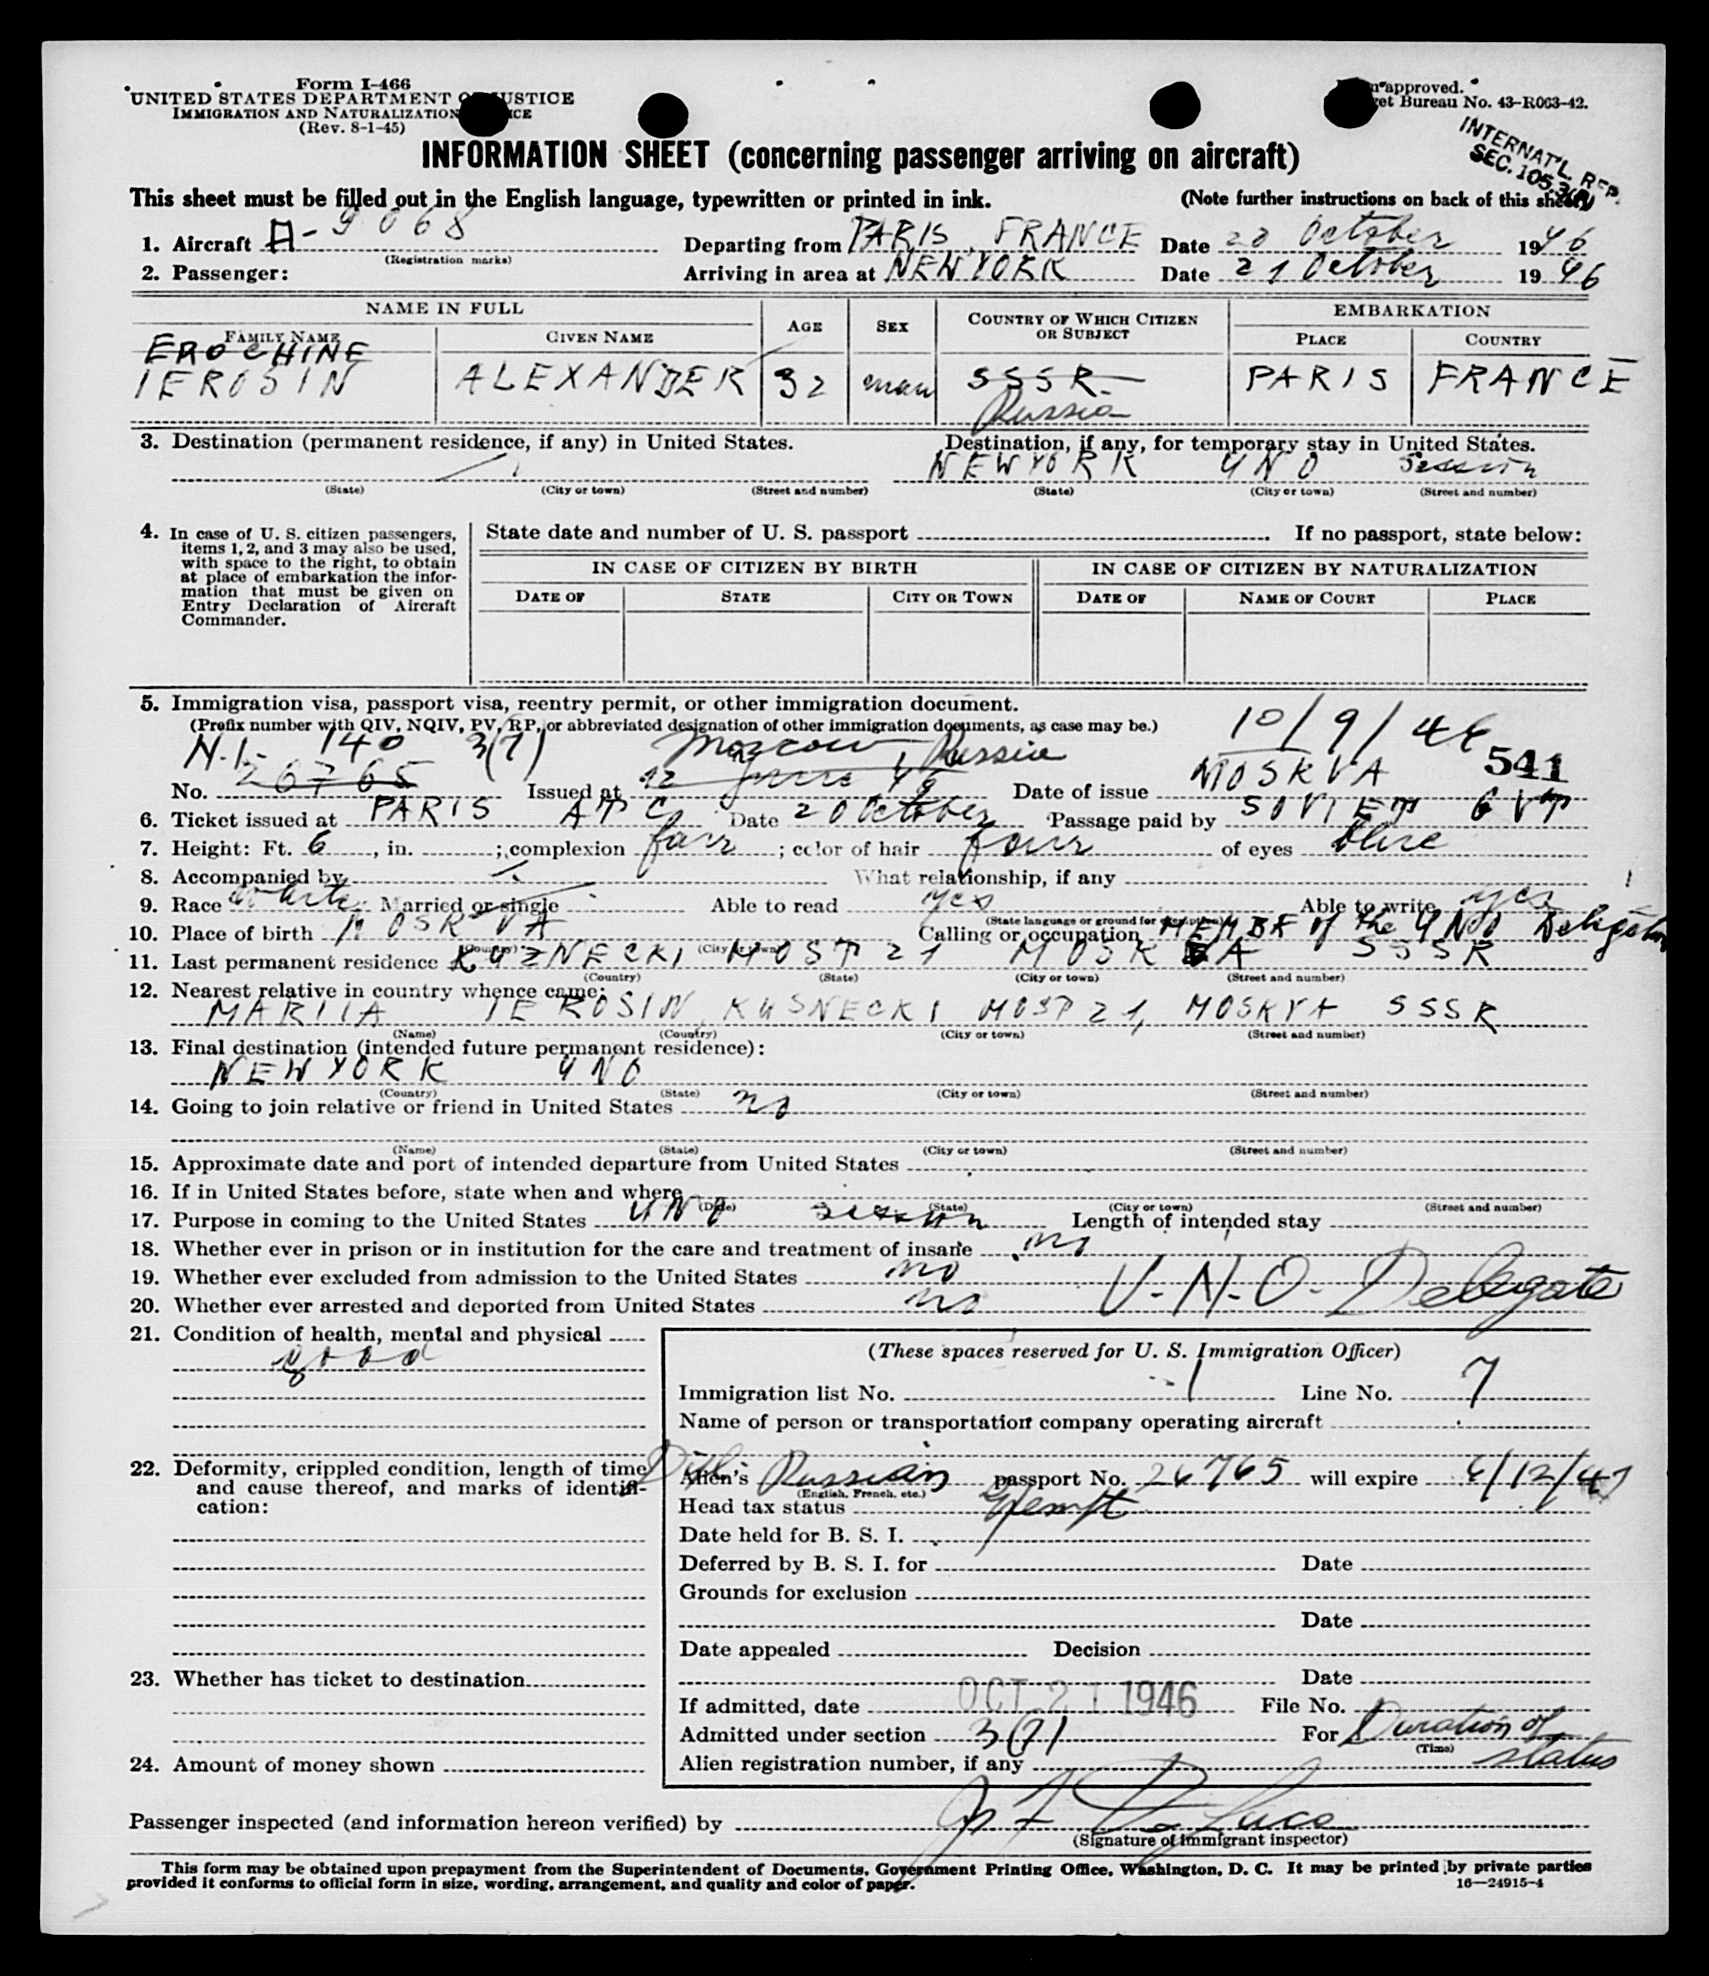 Form I-466
UNITED STATES DEPARTMENT OF JUSTICE
IMMIGRATION AND NATURALIZATION SERVICE
(Rev. 8-1-45)
approved.
Bureau No. 43-R063-42.
INTERNAT'L REP.
SEC. 105.3
INFORMATION SHEET (concerning passenger arriving on aircraft)
This sheet must be filled out in the English language, typewritten or printed in ink. (Note further instructions on back of this sheet)
1. Aircraft A-9068 Departing from PARIS, FRANCE Date 20 October 1946
(Registration marks)
2. Passenger: Arriving in area at NEW YORK Date 21 October 1946
NAME IN FULL AGE SEX COUNTRY OF WHICH CITIZEN OR SUBJECT EMBARKATION
FAMILY NAME GIVEN NAME PLACE COUNTRY
EROCHINE
IEROSIN ALEXANDER 32 man SSSR PARIS FRANCE
Russia
3. Destination (permanent residence, if any) in United States. Destination, if any, for temporary stay in United States.
NEW YORK UNO session
(State) (City or town) (Street and number) (State) (City or town) (Street and number)
4. In case of U. S. citizen passengers, items 1, 2, and 3 may also be used, with space to the right, to obtain at place of embarkation the information that must be given on Entry Declaration of Aircraft Commander.
State date and number of U. S. passport If no passport, state below:
IN CASE OF CITIZEN BY BIRTH IN CASE OF CITIZEN BY NATURALIZATION
DATE OF STATE CITY OR TOWN DATE OF NAME OF COURT PLACE
5. Immigration visa, passport visa, reentry permit, or other immigration document.
(Prefix number with QIV, NQIV, PV, RP, or abbreviated designation of other immigration documents, as case may be.)
N.I- 140 3(7) Moscow, Russia 10/9/46
No. 26765 Issued at 12 June 46 Date of issue MOSKVA 541
6. Ticket issued at PARIS ATC Date 20 October Passage paid by SOVIET GVT
7. Height: Ft. 6, in. ; complexion fair; color of hair fair of eyes blue
8. Accompanied by What relationship, if any
9. Race white Married or single Able to read yes Able to write yes
(State language or ground for exemption)
10. Place of birth MOSKVA Calling or occupation MEMBE of the UNO Delegation
(Country) (City or town)
11. Last permanent residence KUZNECKI MOST 21 MOSKVA SSSR
(Country) (State) (City or town) (Street and number)
12. Nearest relative in country whence came:
MARIIA IEROSIN, KUSNECKI MOST 21, MOSKVA SSSR
(Name) (Country) (City or town) (Street and number)
13. Final destination (intended future permanent residence):
NEW YORK UNO
(Country) (State) (City or town) (Street and number)
14. Going to join relative or friend in United States no
(Name) (State) (City or town) (Street and number)
15. Approximate date and port of intended departure from United States
16. If in United States before, state when and where
(Date) (State) (City or town) (Street and number)
17. Purpose in coming to the United States UNO session Length of intended stay
18. Whether ever in prison or in institution for the care and treatment of insane no
19. Whether ever excluded from admission to the United States no
20. Whether ever arrested and deported from United States no U.N.O. Delegate
21. Condition of health, mental and physical
good
(These spaces reserved for U. S. Immigration Officer)
Immigration list No. 1 Line No. 7
Name of person or transportation company operating aircraft
22. Deformity, crippled condition, length of time and cause thereof, and marks of identification:
Dipl. Alien's Russian passport No. 26765 will expire 6/12/47
(English, French, etc.)
Head tax status Exempt
Date held for B. S. I.
Deferred by B. S. I. for Date
Grounds for exclusion
Date
Date appealed Decision
23. Whether has ticket to destination
Date
If admitted, date OCT 21 1946 File No.
Admitted under section 3(7) For Duration of status
(Time)
24. Amount of money shown
Alien registration number, if any
Passenger inspected (and information hereon verified) by
(Signature of immigrant inspector)
This form may be obtained upon prepayment from the Superintendent of Documents, Government Printing Office, Washington, D. C. It may be printed by private parties
provided it conforms to official form in size, wording, arrangement, and quality and color of paper. 16—24915-4